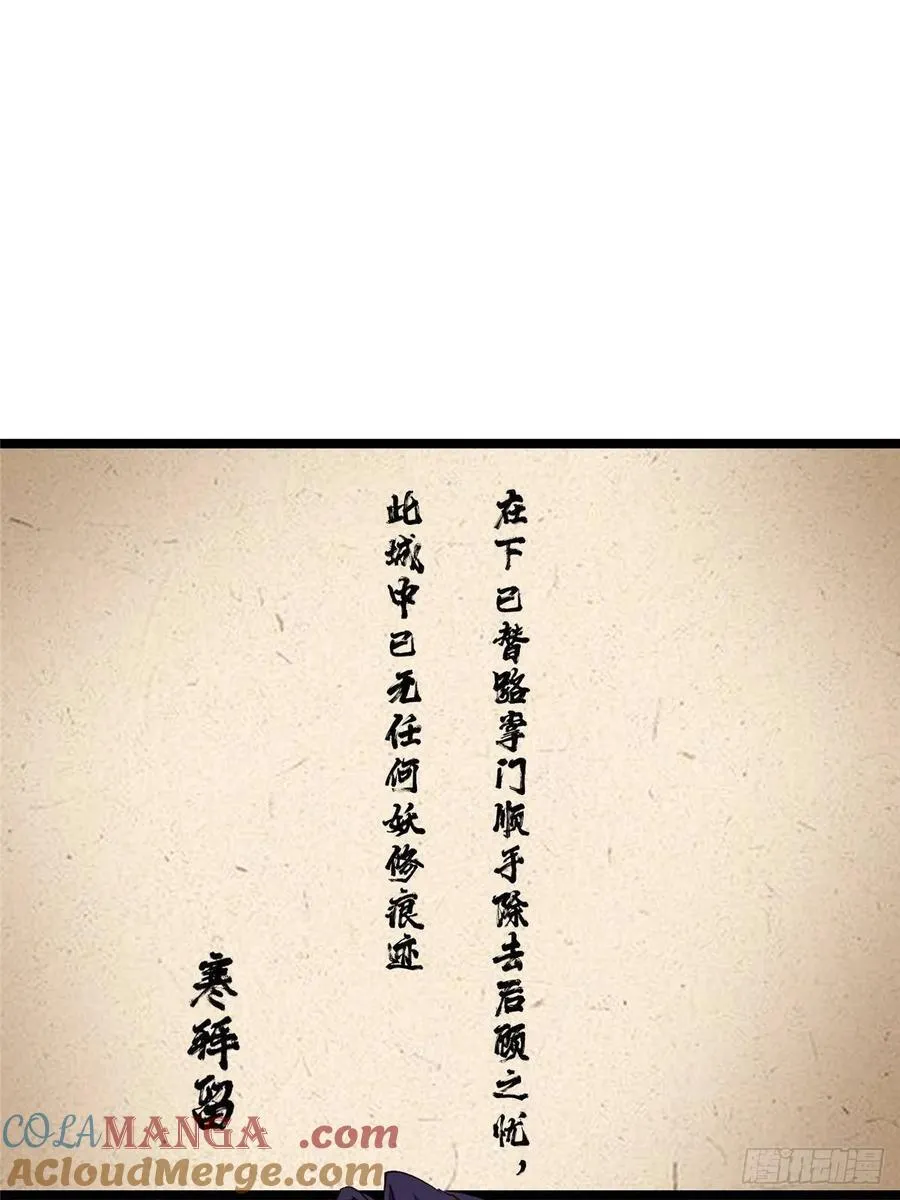 在下已替路掌门顺手除去后顾之忧，
此城中已无任何妖修痕迹
寒拜留
COLAMANGA.com
AcloudMerge.com
腾讯动漫